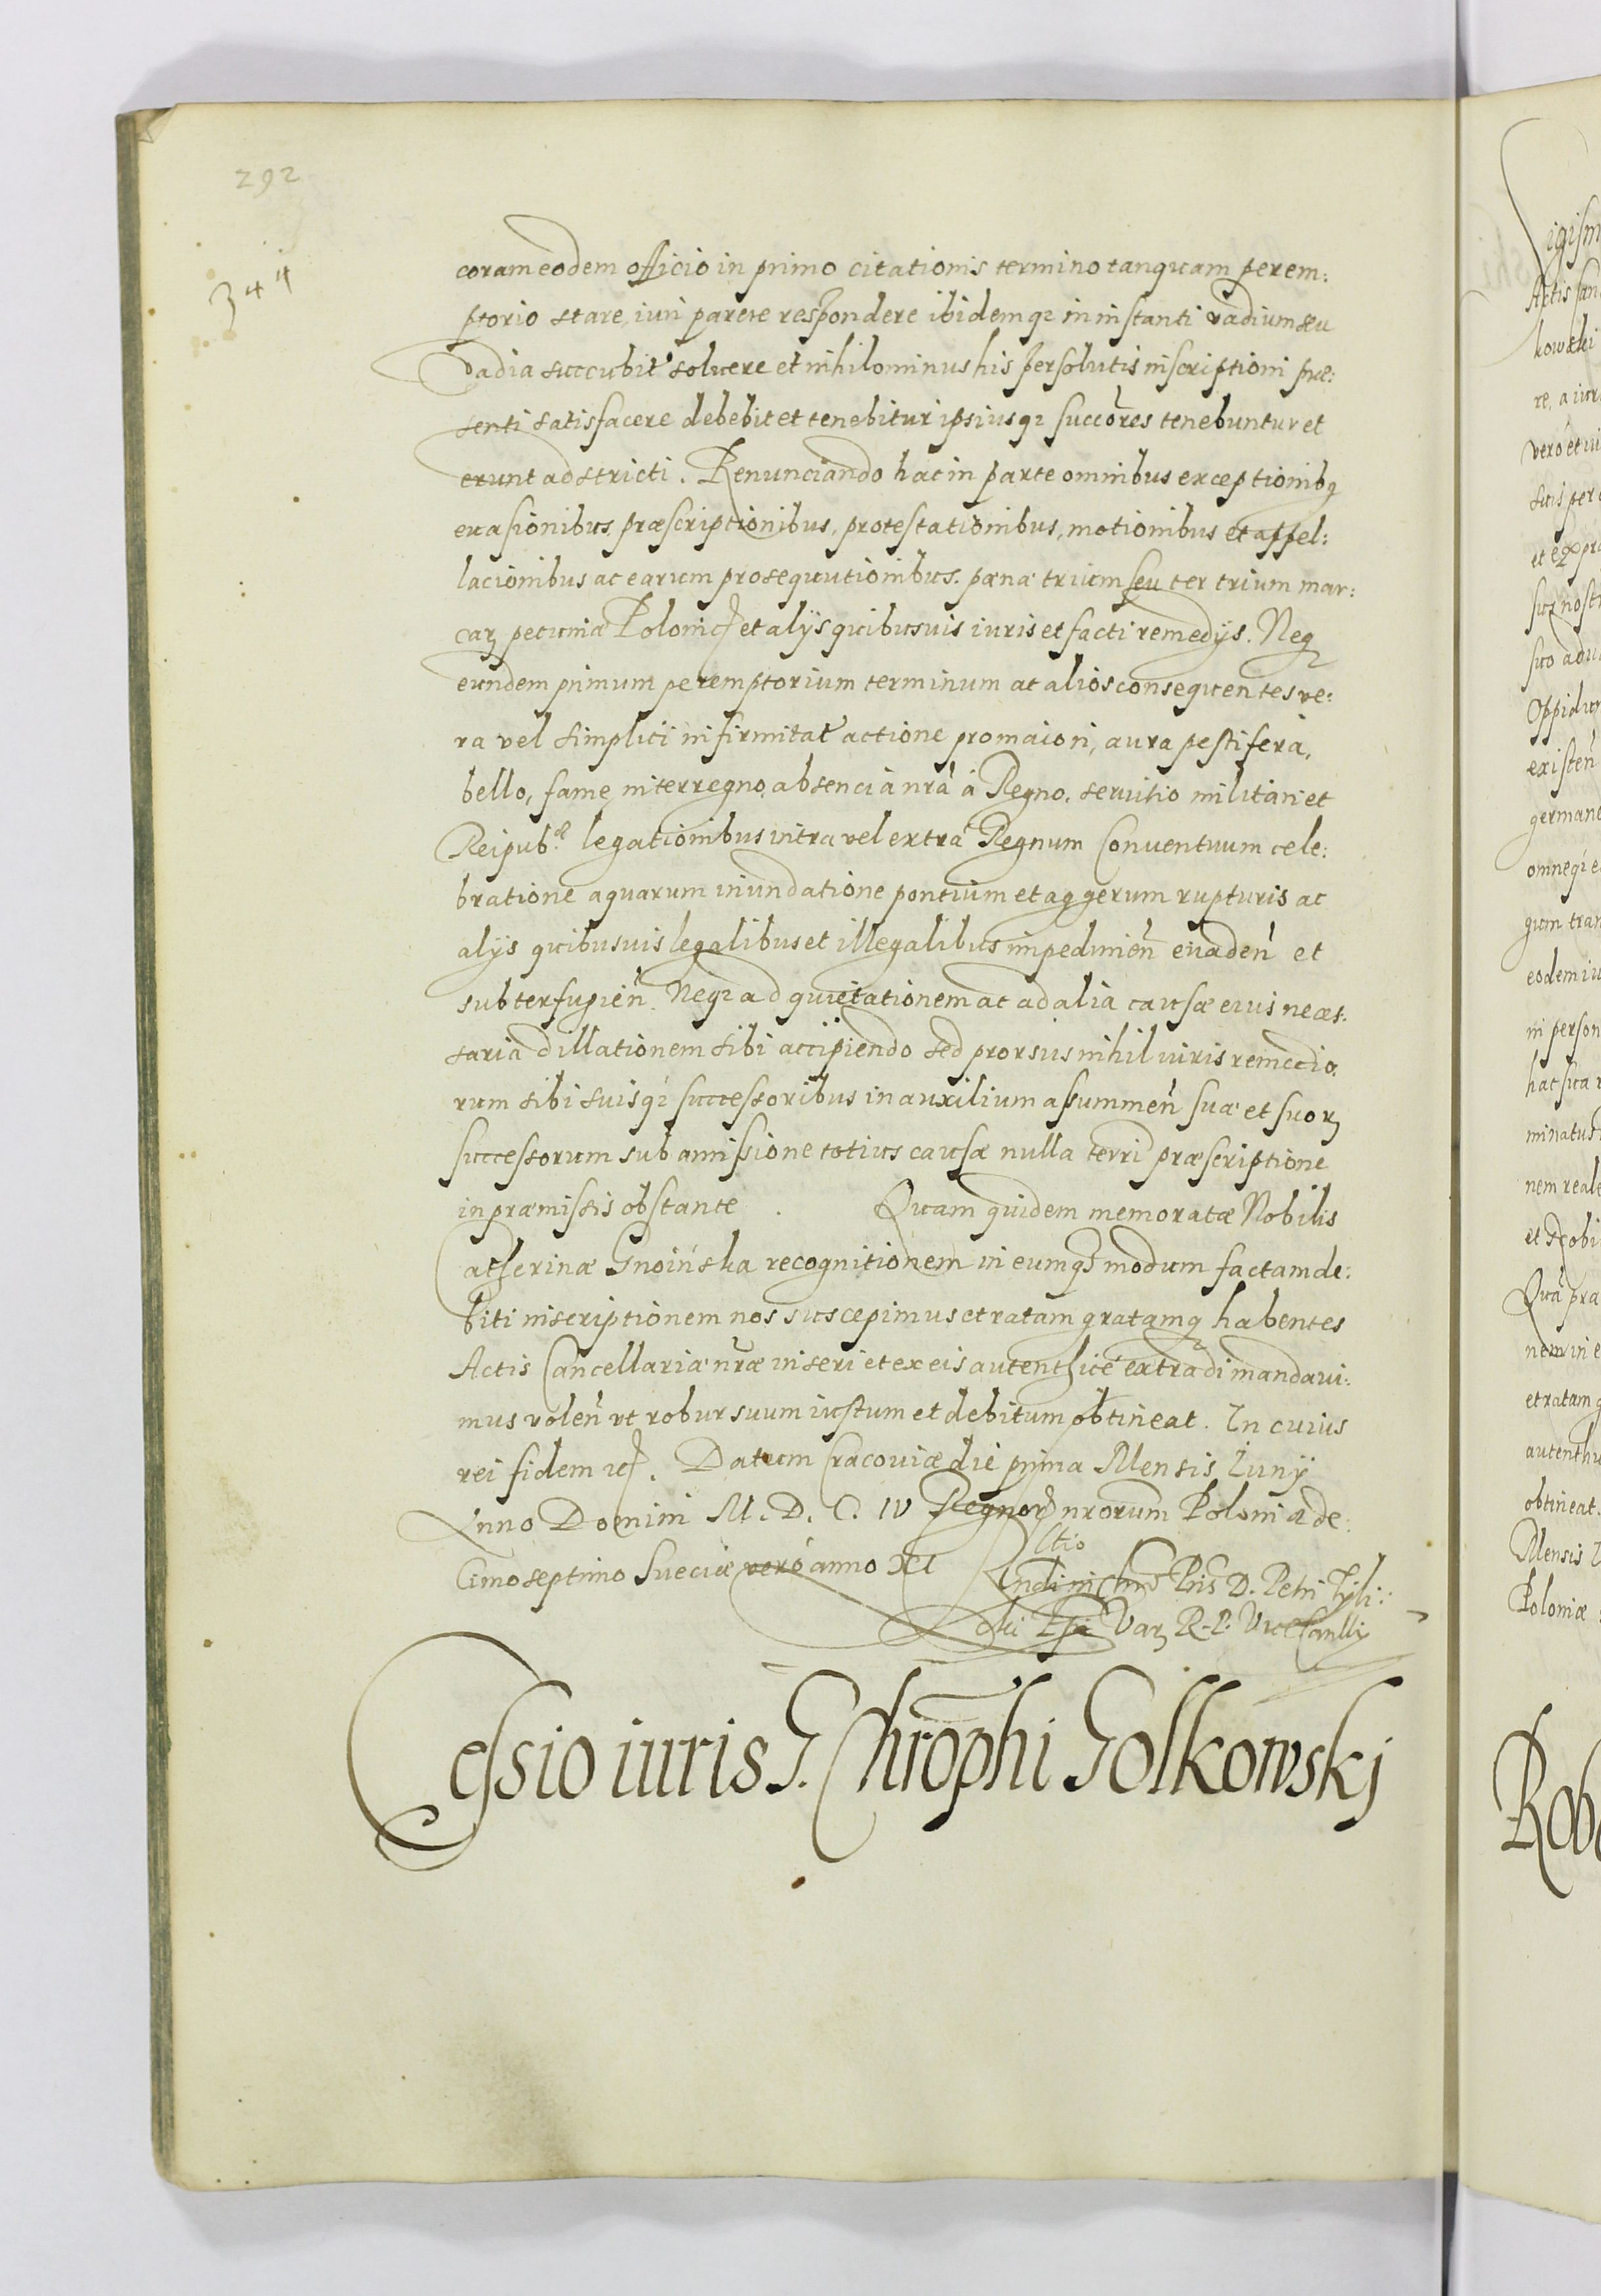 292
344
coram eodem officio in primo citationis termino tanquam perem:
ptorio stare, iuri parere respondere ibidemq; in instanti vadium seu
vadia succubit' solvere et nihilominus his persolutis inscriptioni præ:
senti satisfacere debebit et tenebitur ipsiusq; succōres tenebuntur et
erunt adstricti. Renunciando hac in parte omnibus exceptionibq
euasionibus, præscriptionibus, protestationibus, motionibus et appel:
lacionibus ac earum prosequutionibus. pænæ trium seu ter trium mar:
carꝝ pecuniæ Polonicꝭ et alijs quibusuis iuris et facti remedijs. Neq
eundem primum peremptorium terminum ac alios consequentes ve:
ra vel simplici infirmitat' actione pro maiori, aura pestifera,
bello, fame, interregno, absencia nrā à Regno, seruitio militari et
Reipub. legationibus intra vel extra Regnum Conuentuum cele:
bratione aquarum inundatione pontium et aggerum rupturis ac
alijs quibusuis legalibus et illegalibus impedimen̄ euaden̄ et
subterfugien̄. Neq; ad quietationem ac ad alia causæ eius neces.
saria dillationem sibi accipiendo sed prorsus nihil iuris remedio.
rum sibi suisq; successoribus in auxilium assummen̄ suæ et suorꝝ
successorum sub amissione totius causæ nulla terrī præscriptione
in præmissis obstante. Quam quidem memoratæ Nobilis
Catherinæ Gnoińska recognitionem in eumq; modum factam de:
biti inscriptionem nos suscepimus et ratam gratamq habentes
Actis Cancellariæ nr̄æ inseri et ex eis autenthice extradi mandaui:
mus volen̄ vt robur suum iustum et debitum obtineat. In cuius
rei fidem ꝛcꝭ. Datum Cracouiæ die prima Mensis Iunij
Anno Domini M. D. C. IV Regnorꝝ nrorum Poloniæ de:
cimo septimo Sueciæ vero anno XI
Pris D. Petri Tyli:
R. P.
Cessio iuris G. Chrōphi Golkowskj